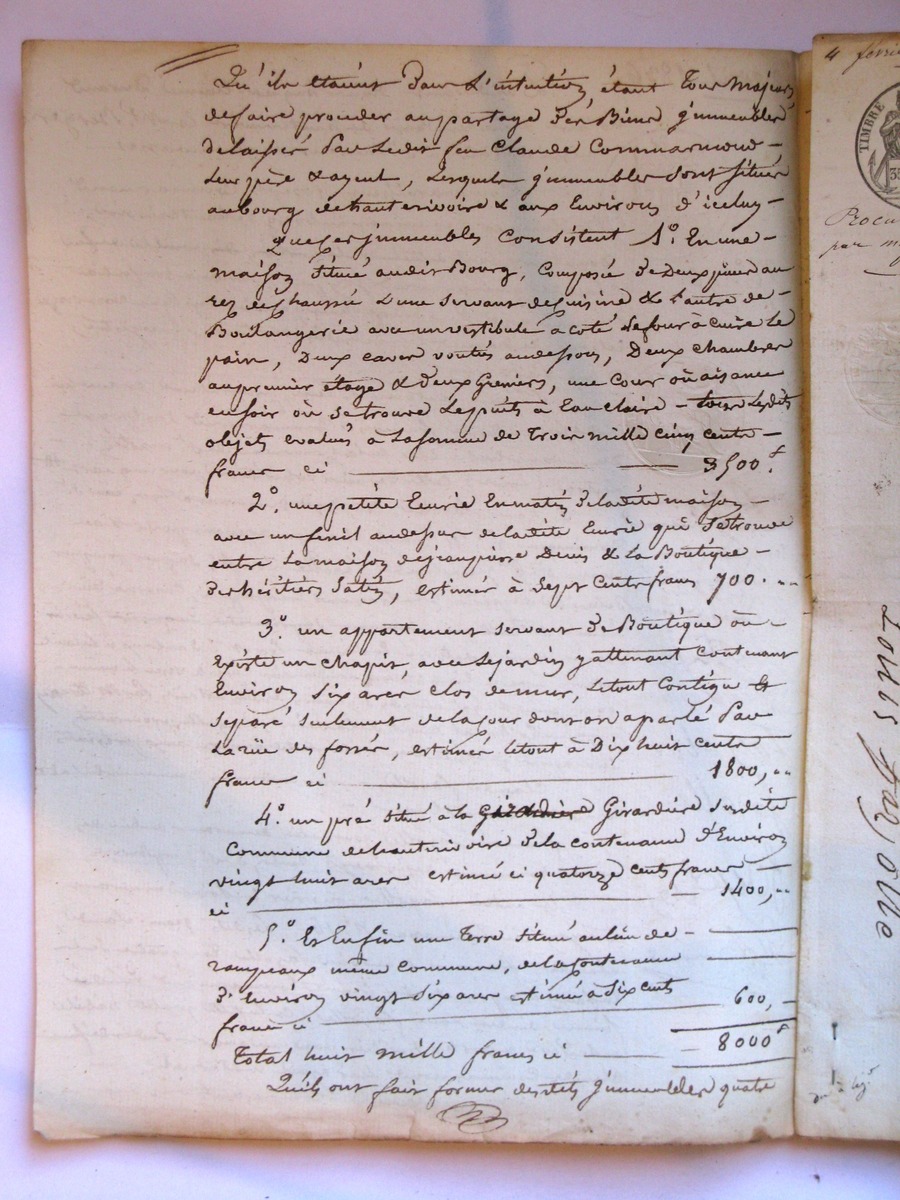 Qu'ils étaient dans l'intention étant Tous Majeurs
de faire proceder au partage des Biens jmmeubles
delaissés Par Ledit feu Claude Commarmond -
Leur père & ayeul, Lesquels jmmeubles sont situés
au bourg de hauterivoire & aux Environs d'iceluy -
Que ces jmmeubles Consistent 1°. En une -
maison située audit Bourg, Composée de Deux pièces au
rez de Chaussée L'une servant de Cuisine & L'autre de -
Boulangerie avec un vestibule à coté le four à cuire Le
pain, Deux caves voutés au dessous, Deux chambres
au premier étage & deux Greniers, une Cour ou aisance
en soir où se trouve Le puits à Eau Claire - tous Lesdits
objets évalués à La somme de Trois mille cinq cents -
francs ci 3500.f
2°. une petite Ecurie En matin de la dite maison -
avec un fenil au dessus de la dite Ecurie qui se trouve
entre La maison de jean pierre Denis & La Boutique -
des héritiers , estimés à Sept Cents francs 700. ..
3°. un appartement servant de Boutique où -
Existe un chapit, avec Le jardin y attenant Contenant
Environ six ares clos de mur, Le tout Contigu &
séparé seulement de la Cour dont on a parlé Par
La rüe des fossés, estimés le tout à Dix huit Cents
francs ci 1800, ..
4°. un pré situé à la Girardière Susdite
Commune de hauterivoire de la contenance d'Environ
vingt huit ares estimé ci quatorze cents francs
ci 1400, ..
5°. Et Enfin une Terre située au lieu de -
rampeaux même Commune, de la Contenance
d'Environ vingt six ares estimée à Six cents
francs ci 600, -
Total huit mille francs ci 8000f
Qu'ils ont fait former desdits jmmeubles quatre
4 février
TIMBRE
35
par
Louis